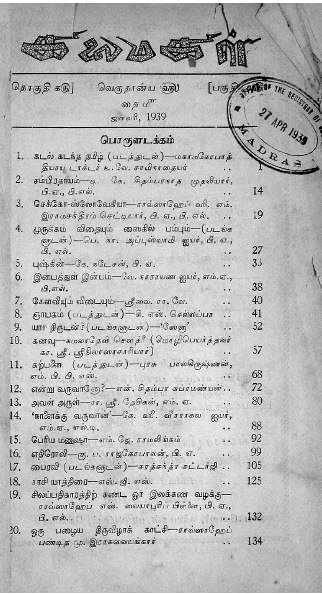 கலைமகள்
வெகுதான்ய
தை மீ
ஜனவரி, 1939
27 APR 1939
MADRAS
பொருளடக்கம்
1. கடல் கடந்த தமிழ் (படத்துடன்)—மகாமகோபாத்
தியாய டாக்டர் உ. வே. சாமிநாதையர் .. 1
2. சம்பிரதாயம்—டி. கே. சிதம்பரநாத முதலியார்,
பி. ஏ., பி. எல். .. 14
3. செக்கோ-ஸ்லோவேகியா—ராவ்ஸாஹெப் வி. எம்.
இராமசந்திரம் செட்டியார், பி. ஏ., பி. எல். .. 19
4. முருக்கம் விதையும்
—பெ. நா. அப்புஸ்வாமி ஐயர், பி. ஏ.,
பி. எல். .. 27
5. புஷ்கின்—கே. நடேசன், பி. ஏ. .. 33
6. இன்பத்துள் இன்பம்—வே. நாராயண ஐயர், எம்.ஏ.,
பி.எல். .. 38
7. கேள்வியும் விடையும்—ஸ்ரீவை. ரா. வே. .. 40
8. ஞாபகம் (படத்துடன்)—சி. எஸ். செல்லப்பா .. 41
9. யார் நிருடன்? (படங்களுடன்)— .. 52
10. கனவு—கமலாதேவி சௌதரி (மொழிபெயர்த்தவர்
கா. ஸ்ரீ. ஸ்ரீநிவாஸாசாரியார்) .. 57
11. கற்பனை (படத்துடன்)—புரசு பாலகிருஷ்ணன்,
எம். பி. பி. எஸ். .. 68
12. என்று வருவானோ?—என். சிதம்பர சுப்ரமண்யன் .. 72
13. அவள் அருள்—ரா. ஸ்ரீ. தேசிகன், எம். ஏ. .. 80
14. 'நாளைக்கு வருவான்'—கே. வி. விசாலாக்ஷ ஐயர்,
எம்.ஏ., எல்.டி. .. 88
15. பெரிய மனுஷர்—எம். ஜே. ராமலிங்கம் .. 92
16. எதிரொலி—கு. ப. ராஜகோபாலன், பி. ஏ. .. 99
17. பைரவி (படங்களுடன்)—சரத்சந்திர சட்டர்ஜி .. 105
18. காசி யாத்திரை—எஸ். ஜி. எஸ். .. 125
19. சிலப்பதிகாரத்திற் கண்ட ஓர் இலக்கண வழக்கு—
ராவ்ஸாஹேப் எஸ். வையாபுரிப் பிள்ளை, பி. ஏ.,
பி. எல். .. 132
20. ஒரு பழைய திருவிழாக் காட்சி—ராவ்ஸாஹேப்
பண்டித மு. இராகவையங்கார் .. 134